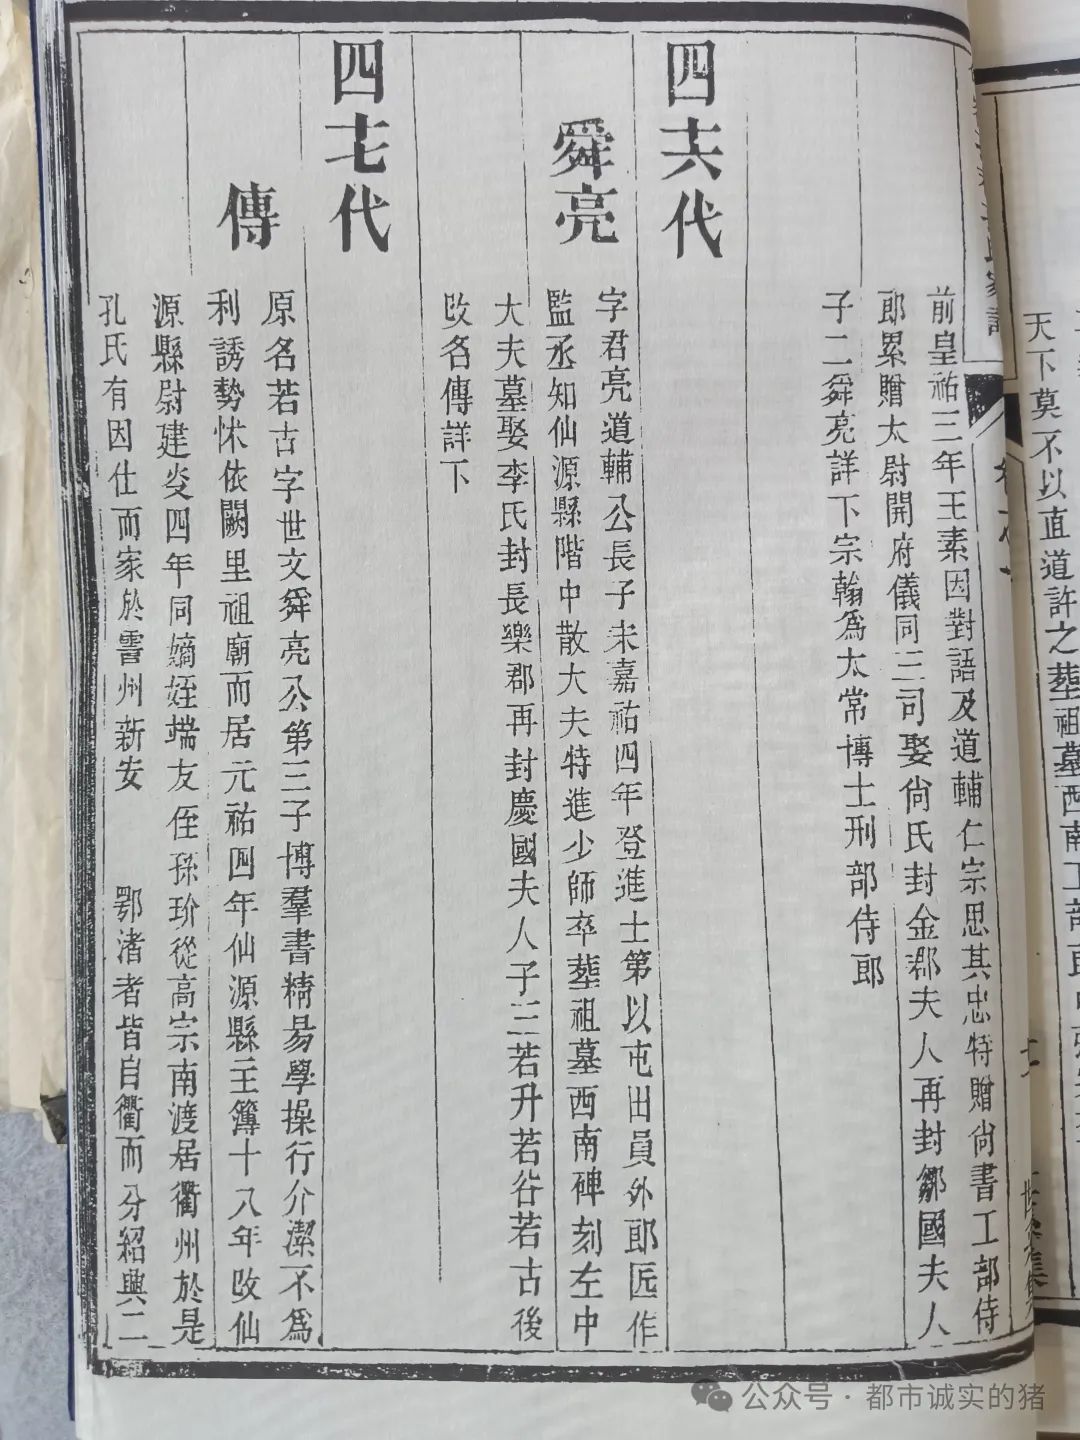 天下莫不以直道許之葬祖墓西南工部
前皇祐三年王素因對語及道輔仁宗思其忠特贈尙書工部侍
郎累贈太尉開府儀同三司娶尙氏封金郡夫人再封鄒國夫人
子二舜亮詳下宗翰爲太常博士刑部侍郎
四十六代
舜亮
字君亮道輔公長子未嘉祐四年登進士第以屯田員外郎匠作
監丞知仙源縣階中散大夫特進少師卒葬祖墓西南碑刻左中
大夫墓娶李氏封長樂郡再封慶國夫人子三若升若谷若古後
改名傳詳下
四十七代
傳
原名若古字世文舜亮公第三子博羣書精易學操行介潔不爲
利誘勢怵依闕里祖廟而居元祐四年仙源縣主簿十八年改仙
源縣尉建炎四年同嫡姪端友侄孫玠從高宗南渡居衢州於是
孔氏有因仕而家於霅州新安 鄂渚者皆自衢而分紹興二
公众号·都市诚实的猪